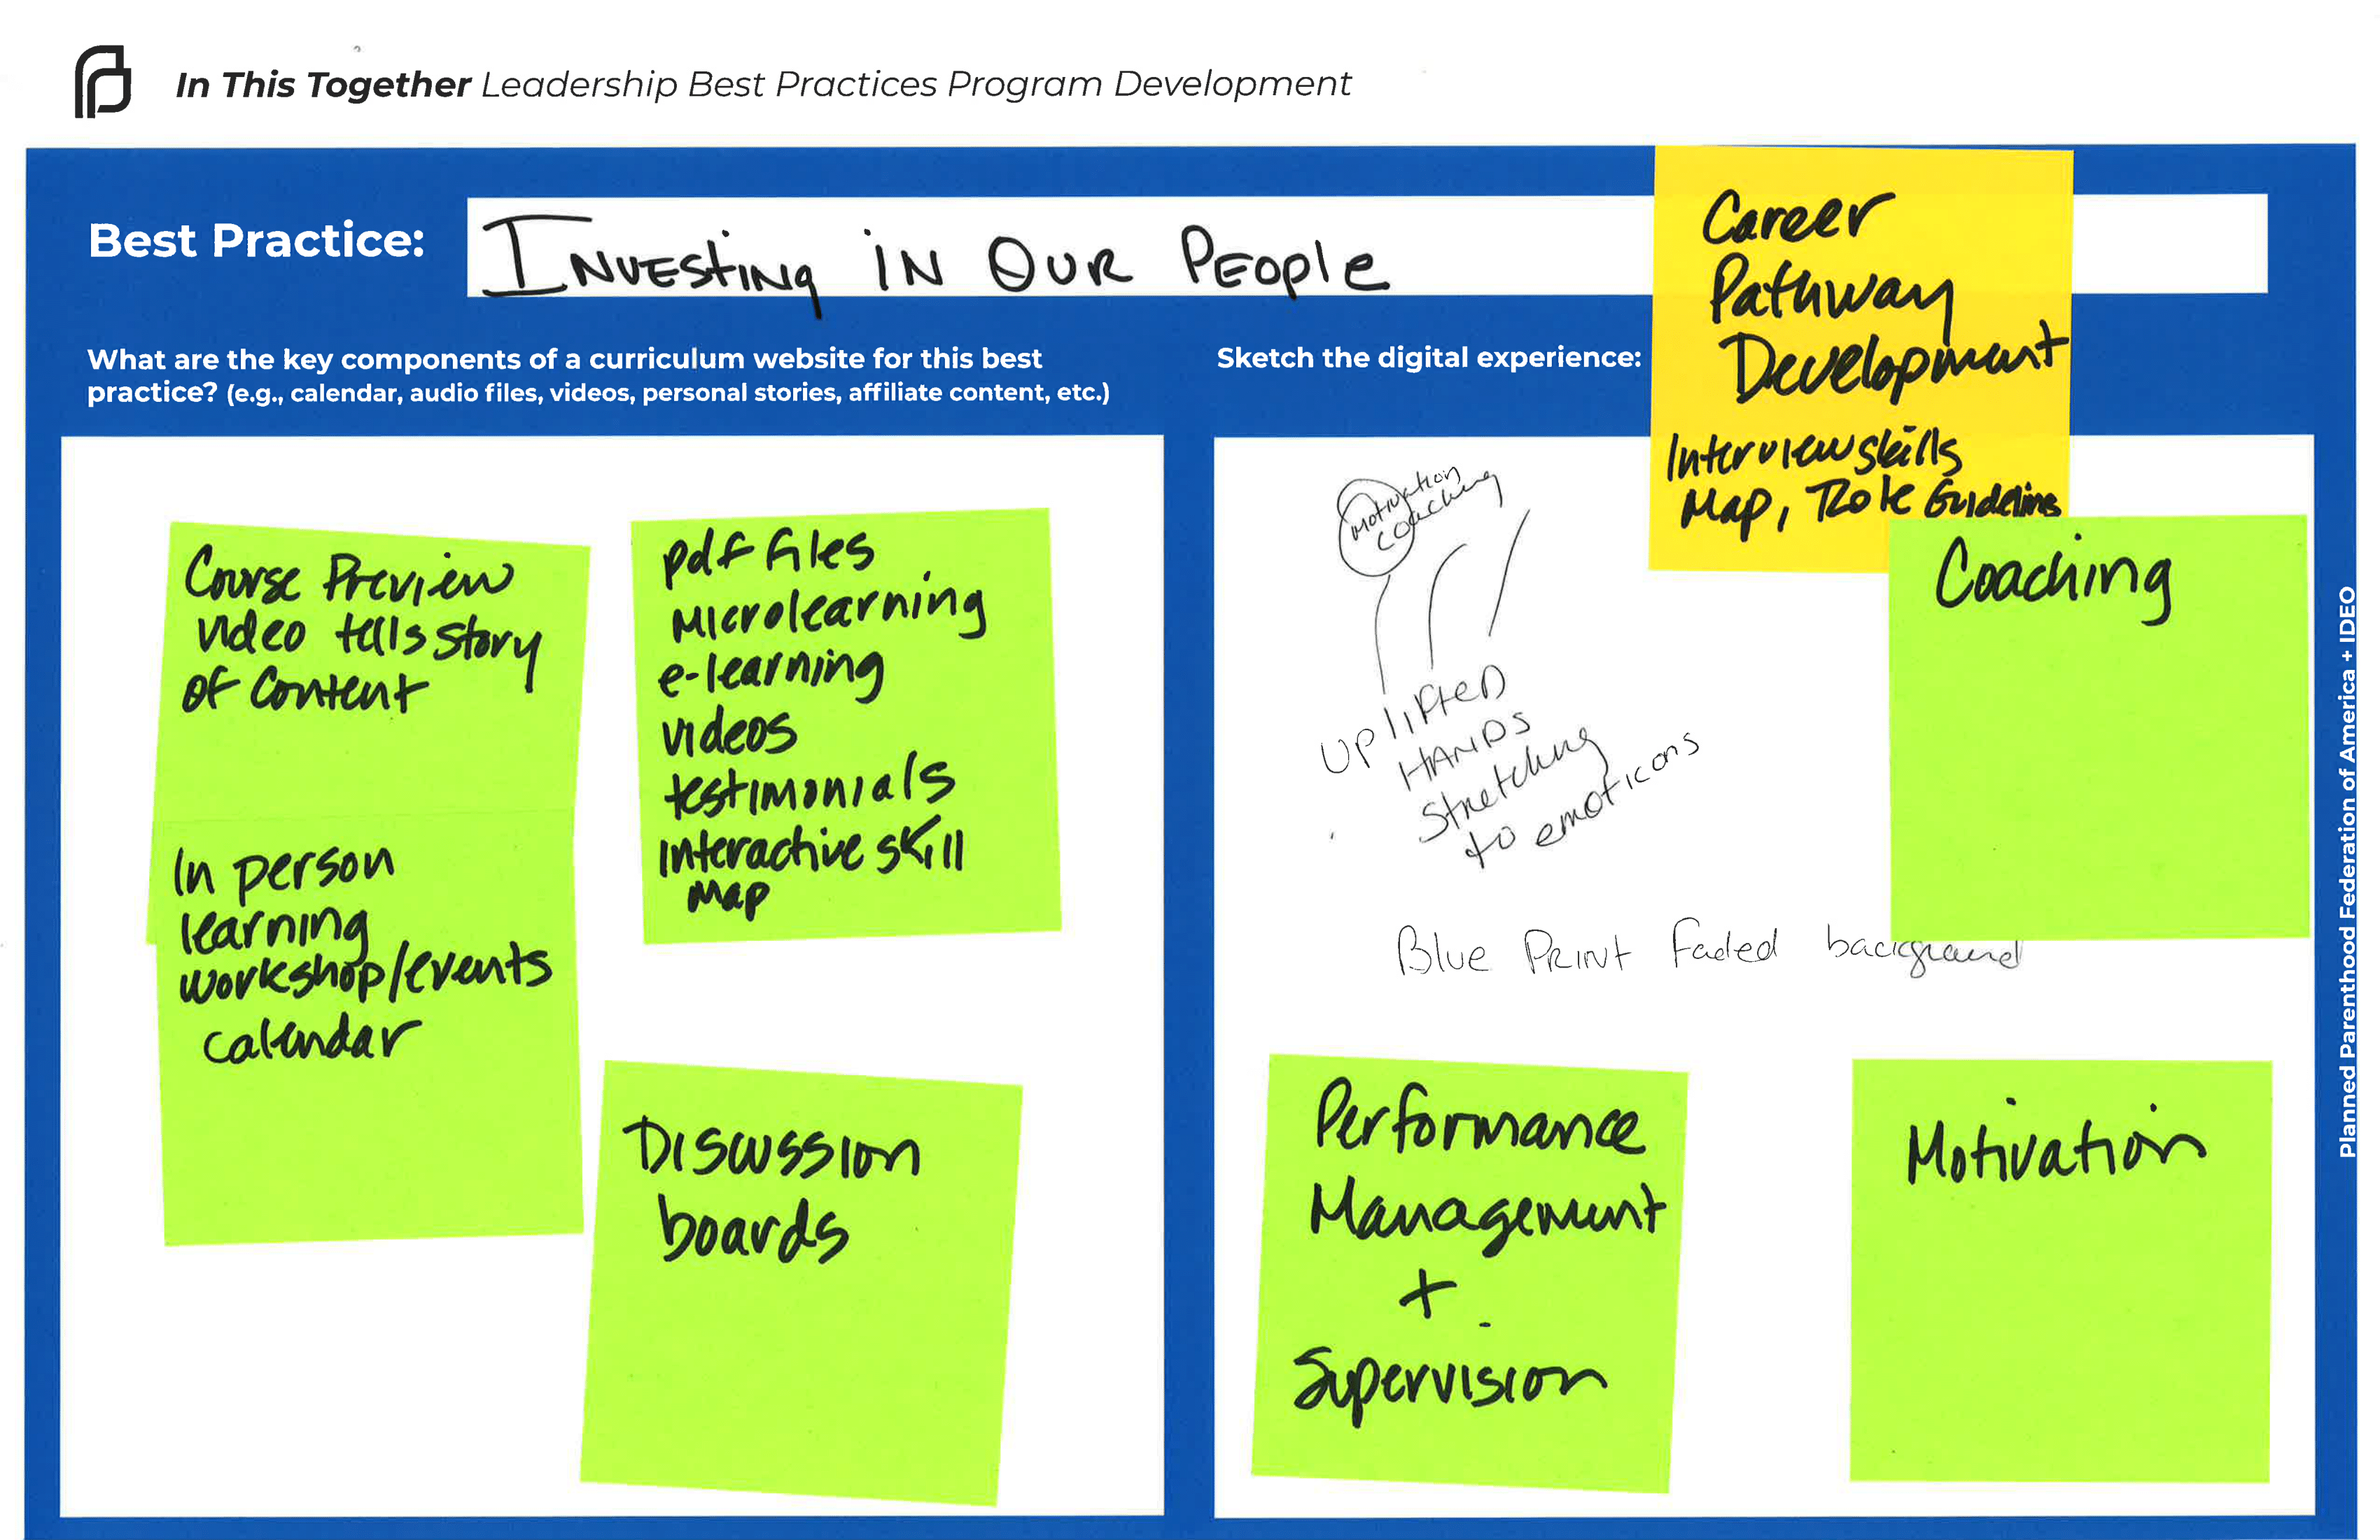 In This Together Leadership Best Practices Program Development
Best Practice:
Investing in Our People
What are the key components of a curriculum website for this best
practice? (e.g., calendar, audio files, videos, personal stories, affiliate content, etc.)
Course Preview
video tells story
of content
In person
learning
workshop/events
calendar
pdf files
Microlearning
e-learning
videos
testimonials
Interactive skill
Map
Discussion
boards
Sketch the digital experience:
Career
Pathway
Development
Interview skills
Map, Role Guidelines
Motivation
coaching
Uplifted
Hands
Stretching
to emoticons
Coaching
Blue Print Faded background
Performance
Management
+
Supervision
Motivation
Planned Parenthood Federation of America + IDEO